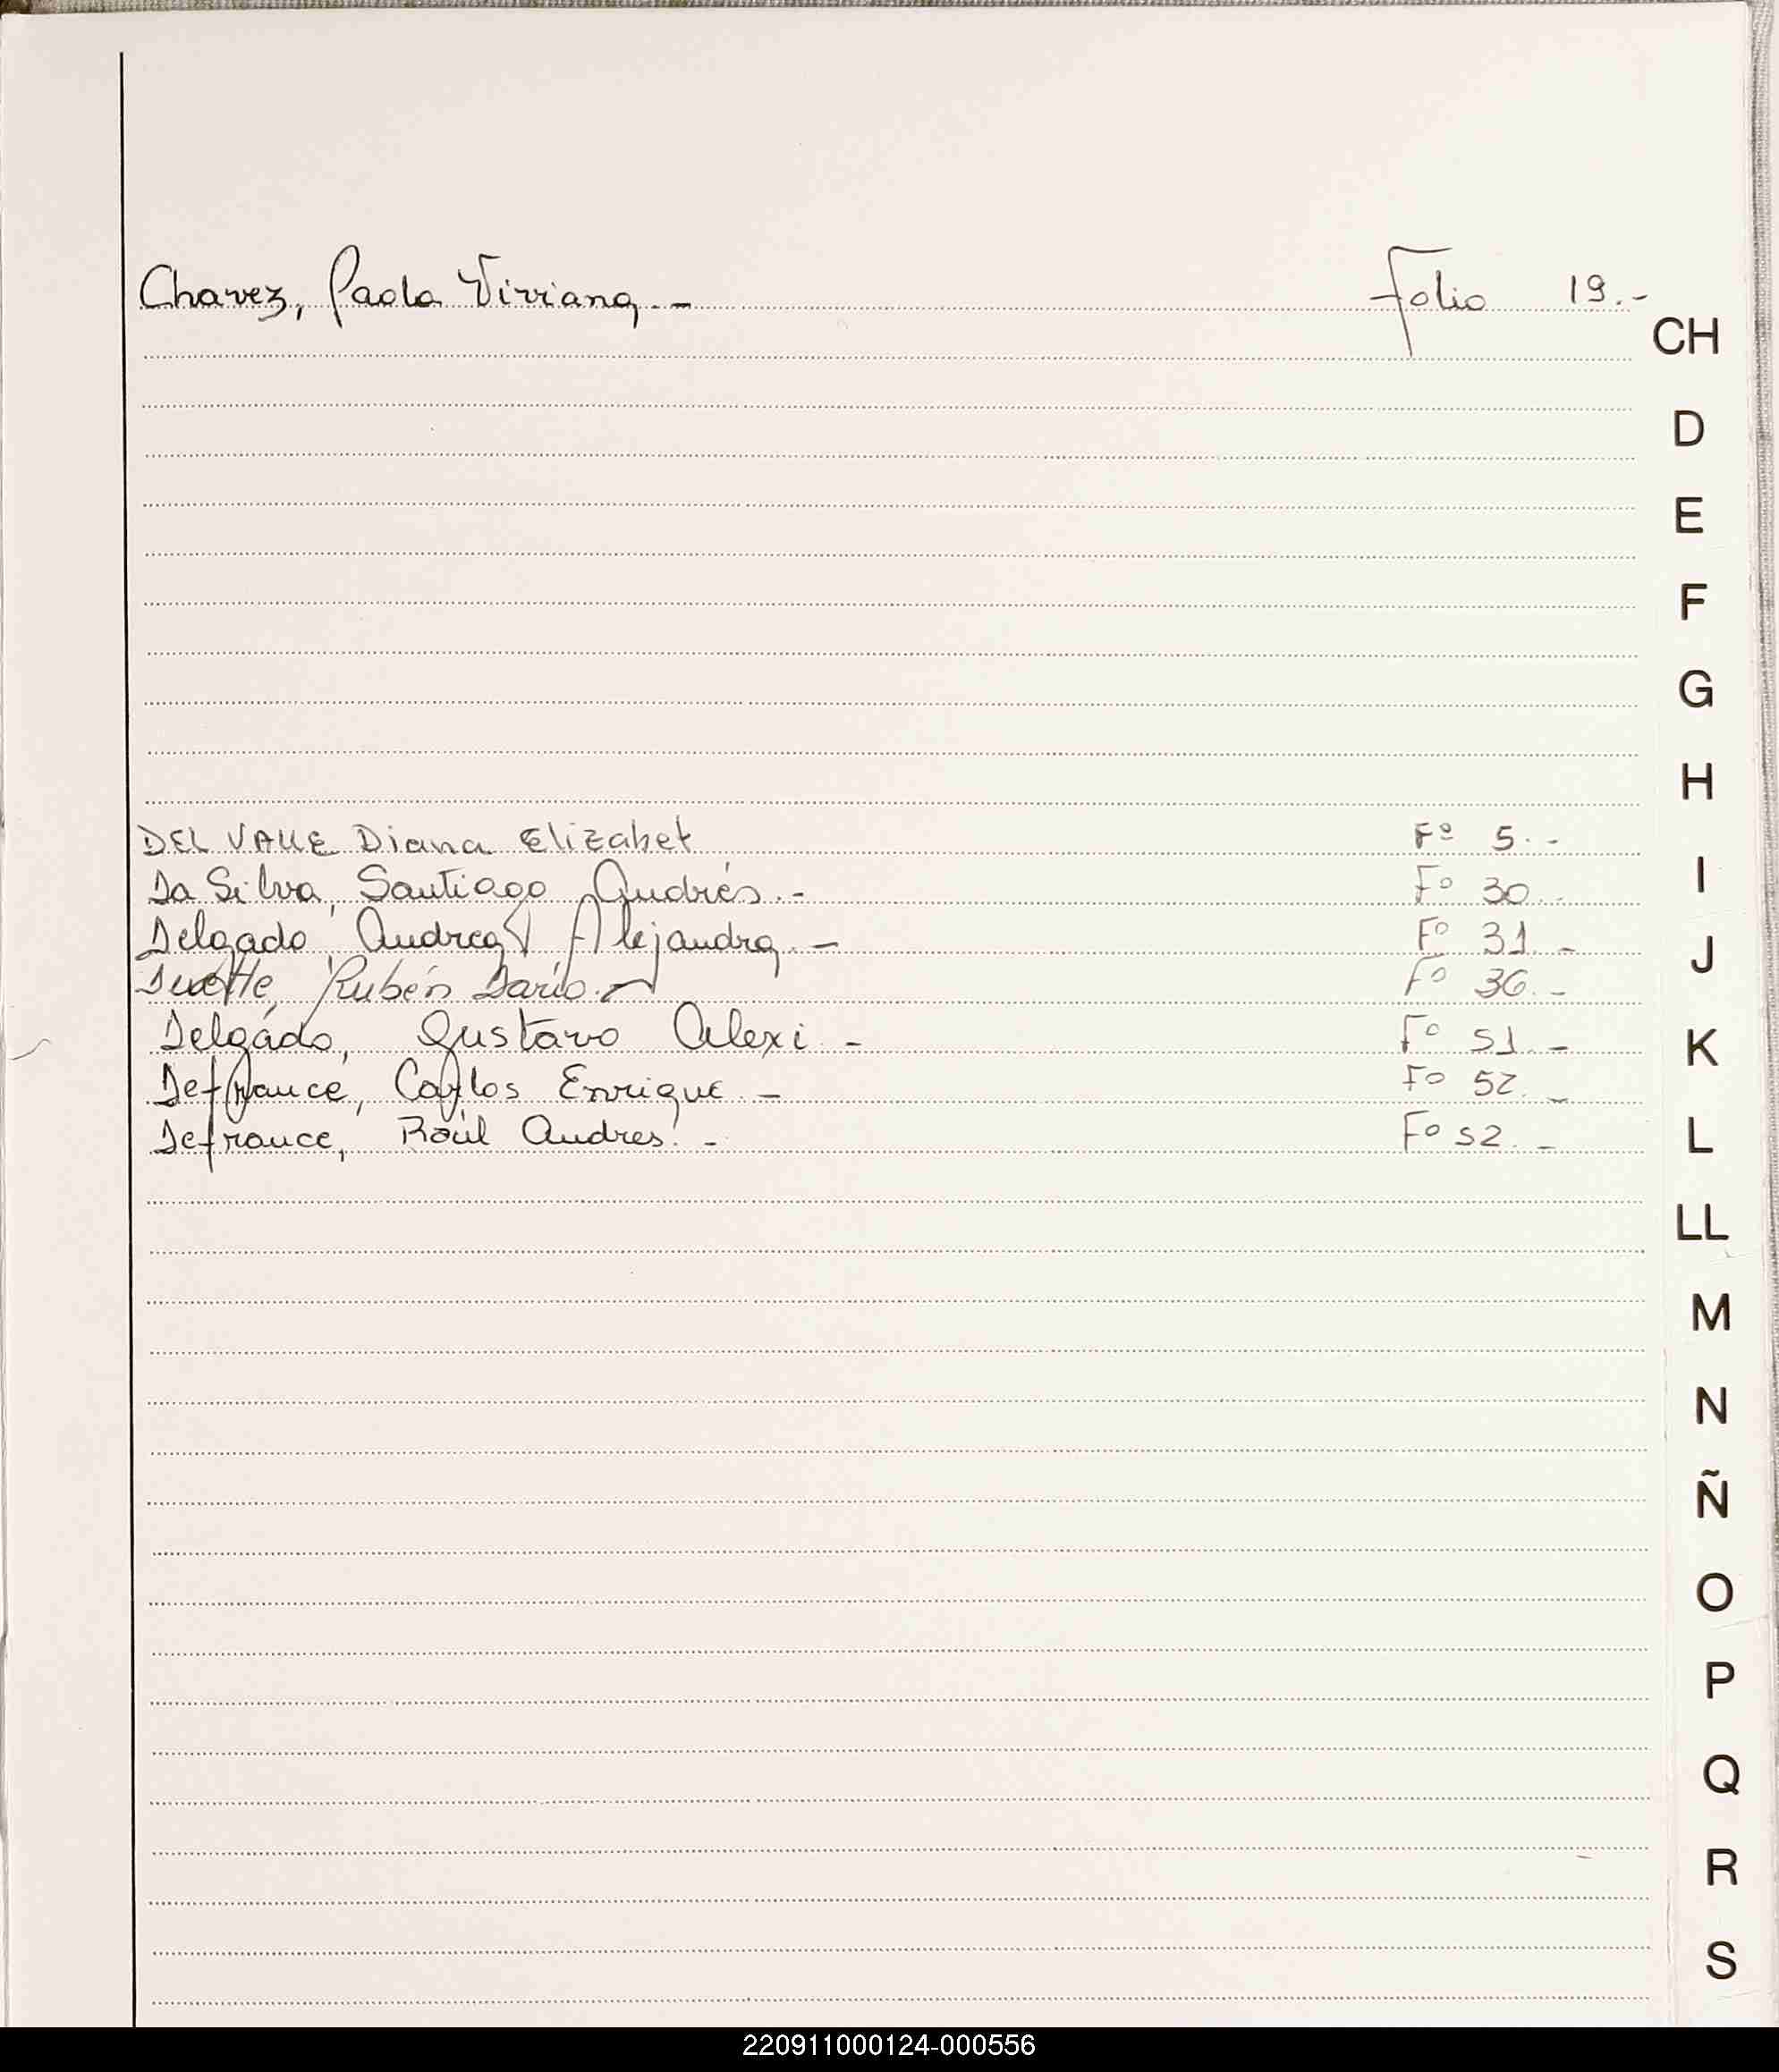 Chavez, Paola Viviana.-
Folio 19.-
CH
D
E
F
G
H
DEL VALLE Diana Elizabet
Fº 5.-
I
Da Silva, Santiago Andrés.-
Fº 30.-
Delgado, Andrea Alejandra.-
Fº 31.-
J
Rubén Darío.-
Fº 36.-
Delgado, Gustavo Alexi.-
Fº 51.-
K
Defrance, Carlos Enrique.-
Fº 52.-
Defrance, Raúl Andres.-
Fº 52.-
L
LL
M
N
Ñ
O
P
Q
R
S
220911000124-000556